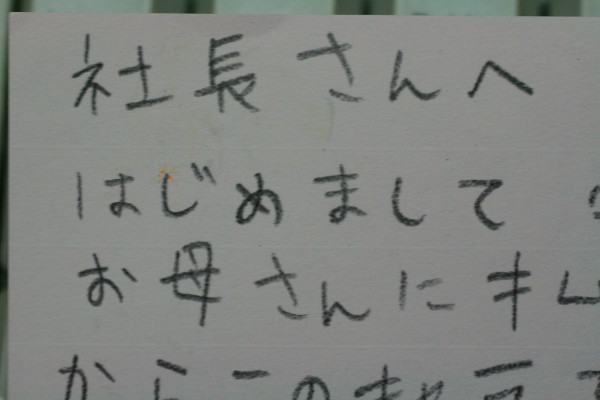 社長さんへ
はじめまして
お母さんにキム
からこの